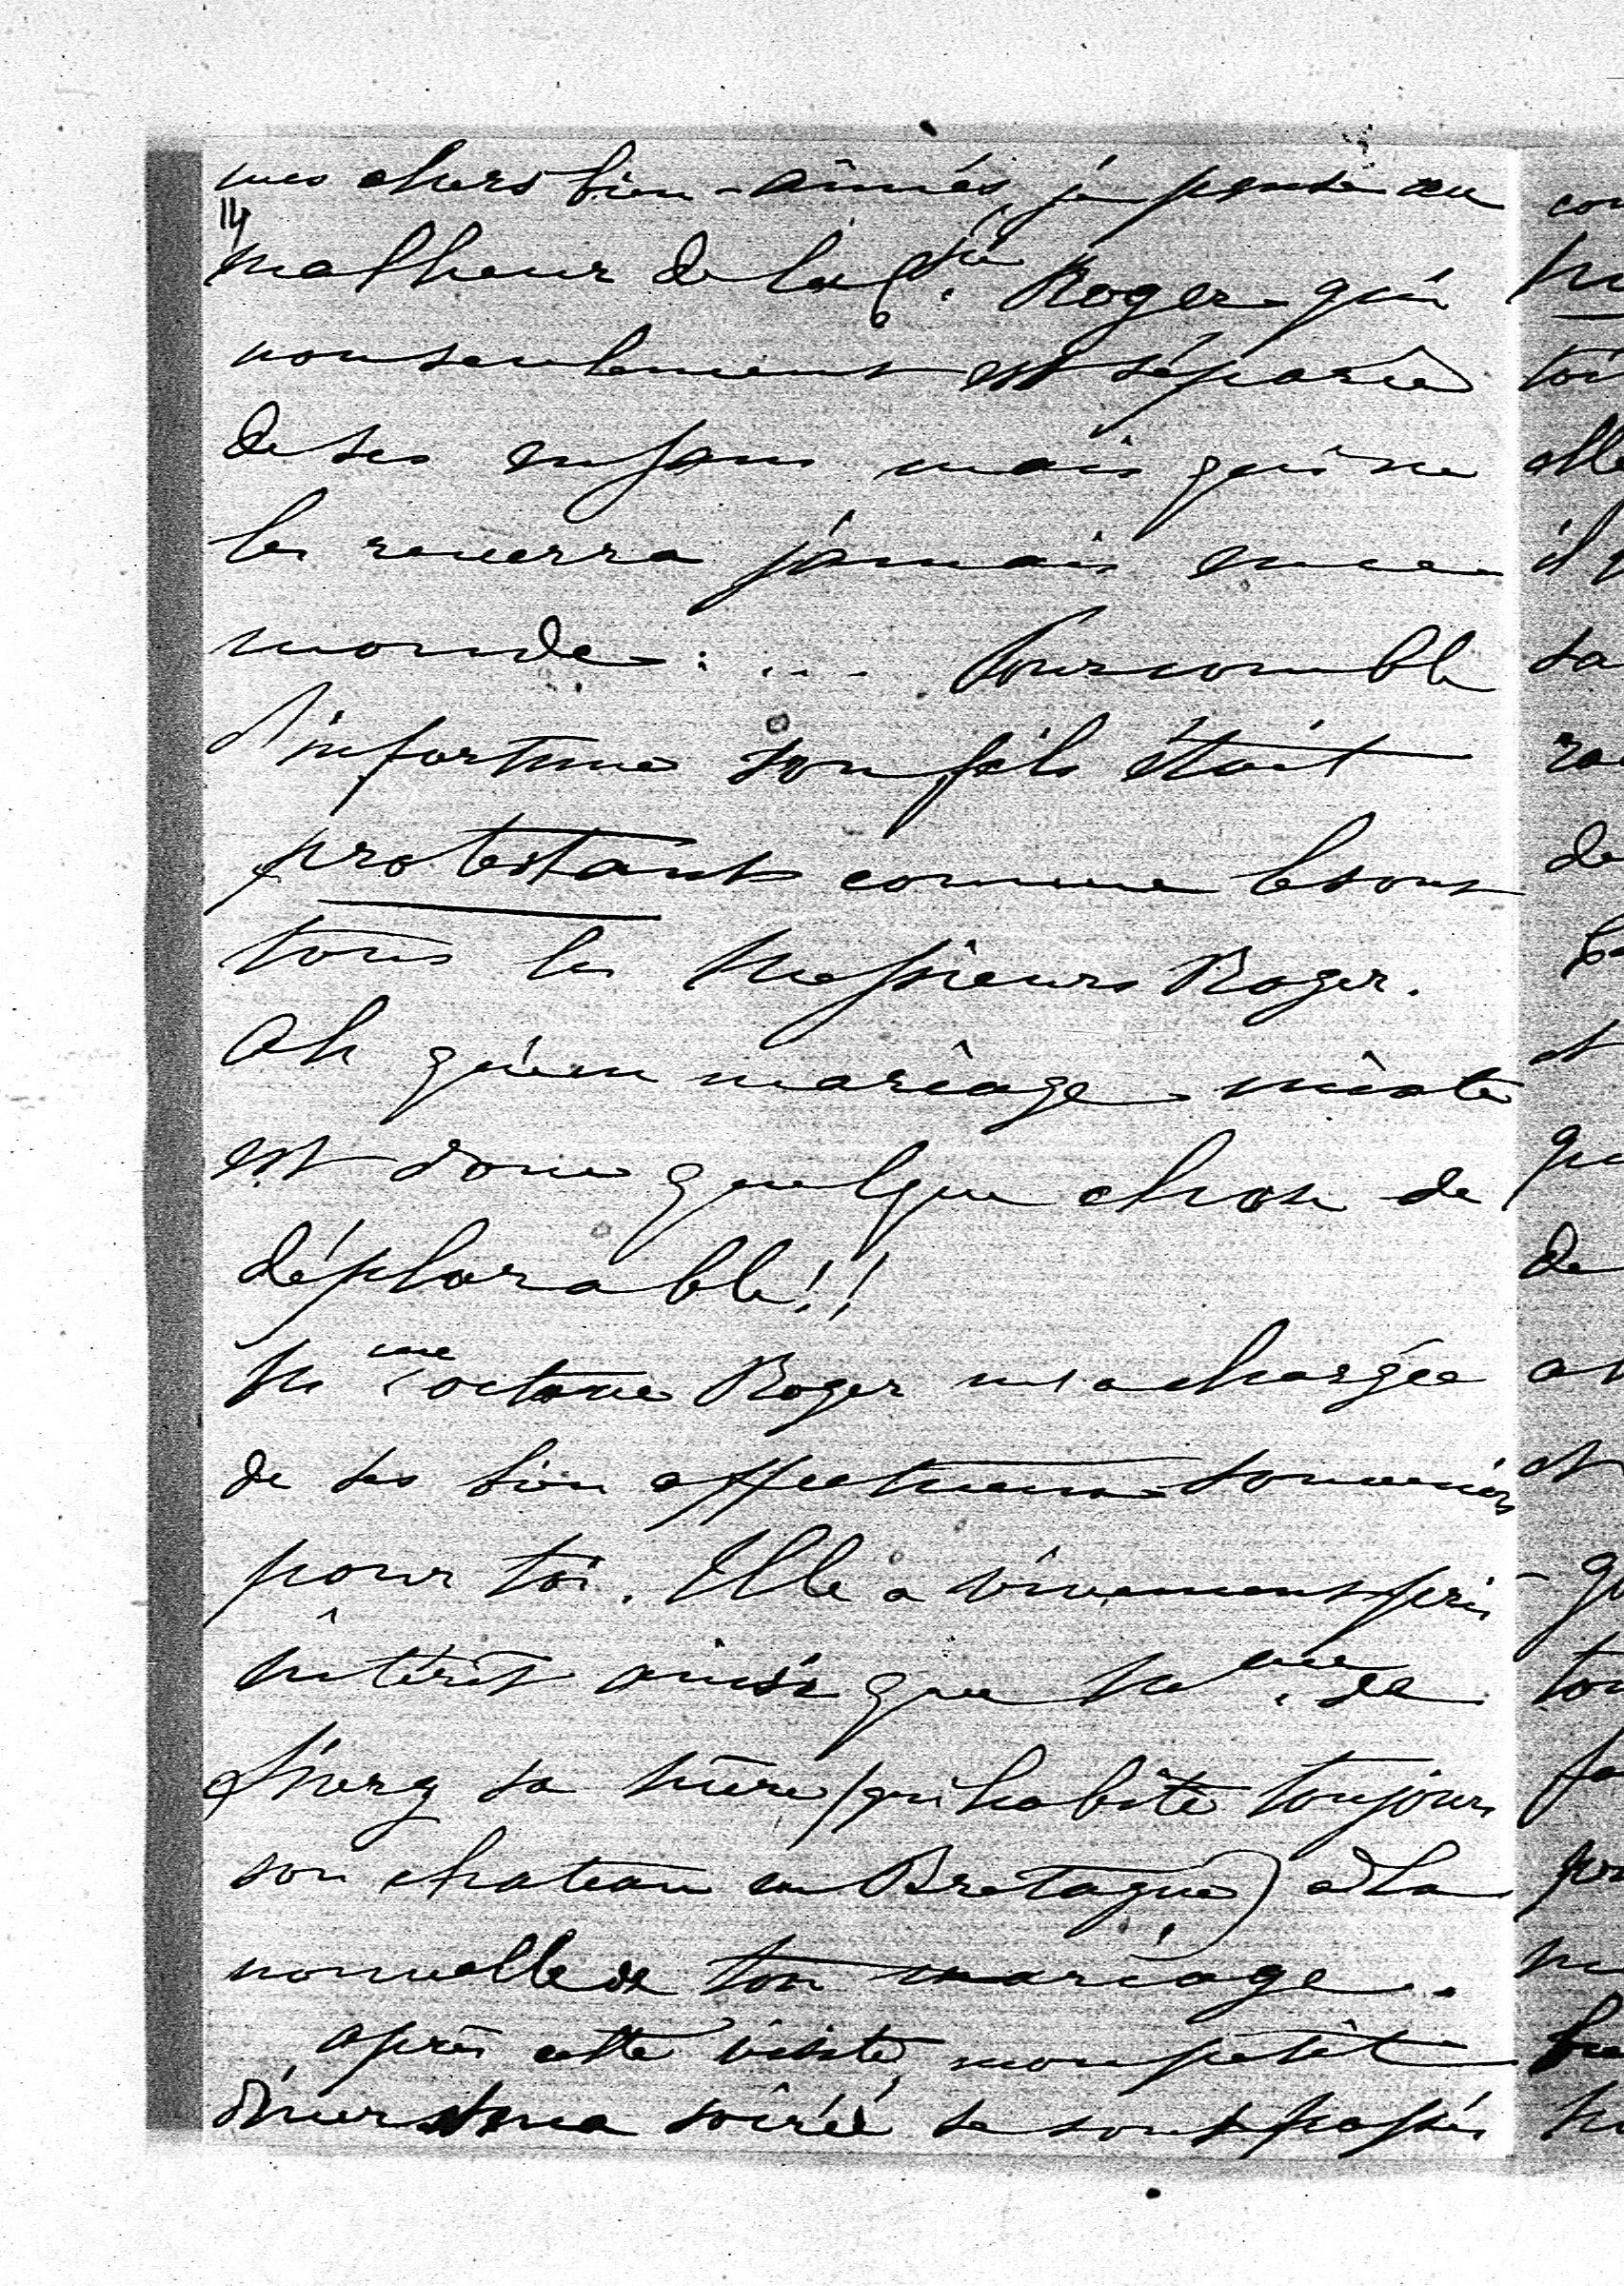 mes chers bien-aimés, je pense au
14
malheur de la Ctsse. Roger qui
non seulement est séparée
de ses enfans mais qui ne
les reverra jamais en ce
monde. ... Pour comble
d'infortune son fils était
protestant comme le sont
tous les Messieurs Roger.
Ah qu'un mariage mixte
est donc quelque chose de
déplorable!!
Mme Octave Roger m'a chargée
de ses bien affectueux souvenirs
pour toi. Elle a vivement pris
intérêt ainsi que Mme. de
sa mère (qui habite toujours
son chateau en Bretagne) à la
nouvelle de ton mariage.
après cette visite, mon petit
diner et ma soirée se sont passés